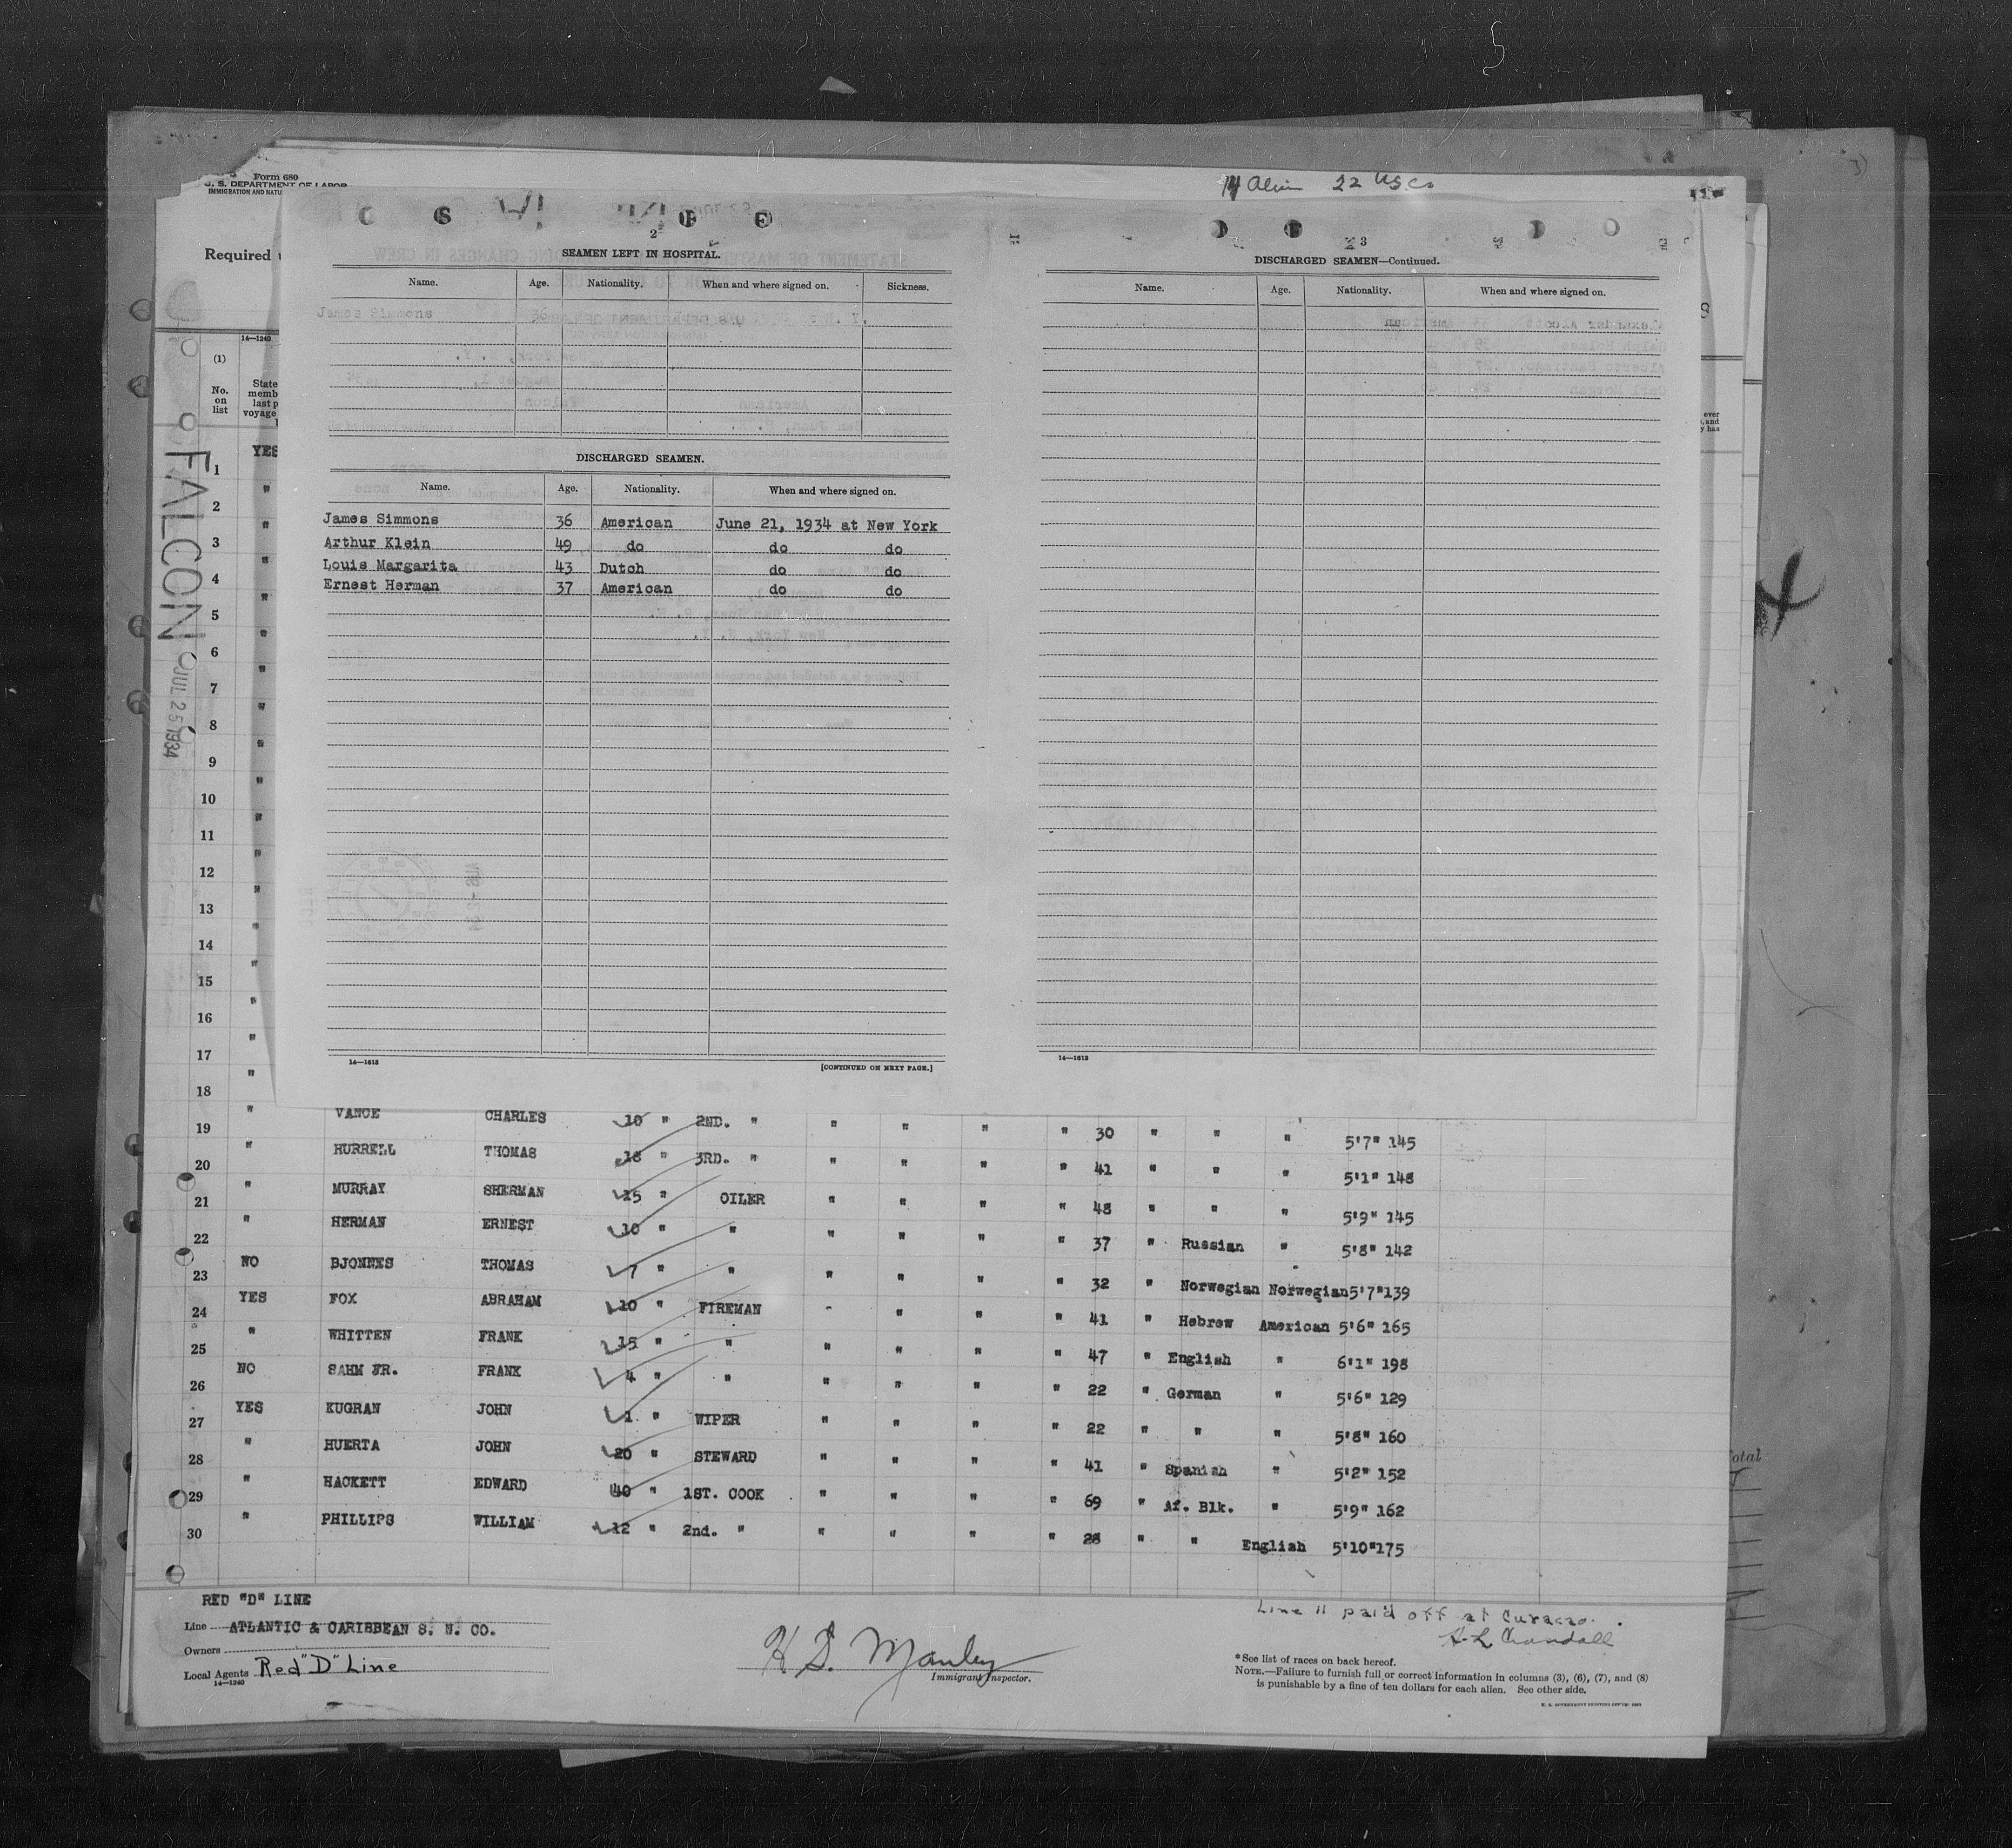 Form 680
U. S. DEPARTMENT OF LABOR
IMMIGRATION AND NATU
14 Alien 22 USCs
Required
14—1240
(1)
No. on list
State
memb
last p
voyage
FALCON JUL 25 1934
2
SEAMEN LEFT IN HOSPITAL.
Name. Age. Nationality. When and where signed on. Sickness.
James Simmons
DISCHARGED SEAMEN.
Name. Age. Nationality. When and where signed on.
James Simmons 36 American June 21, 1934 at New York
Arthur Klein 49 do do do
Louis Margarita 43 Dutch do do
Ernest Herman 37 American do do
14—1613
[CONTINUED ON NEXT PAGE.]
3
DISCHARGED SEAMEN—Continued.
Name. Age. Nationality. When and where signed on.
14—1613
ever
, and
y has
YES
1 "
2 "
3 "
4 "
5 "
6 "
7 "
8 "
9 "
10 "
11 "
12 "
13 "
14 "
15 "
16 "
17 "
18 "
19 " VANCE CHARLES 10 " 2ND. " " " " " 30 " " " 5'7" 145
20 " HURRELL THOMAS 18 " 3RD. " " " " " 41 " " " 5'1" 148
21 " MURRAY SHERMAN 15 " OILER " " " " 48 " " " 5'9" 145
22 " HERMAN ERNEST 10 " " " " " " 37 " Russian " 5'8" 142
23 NO BJONNES THOMAS 7 " " " " " " 32 " Norwegian Norwegian 5'7" 139
24 YES FOX ABRAHAM 10 " FIREMAN - " " " 41 " Hebrew American 5'6" 165
25 " WHITTEN FRANK 15 " " " " " " 47 " English " 6'1" 198
26 NO SAHM JR. FRANK 4 " " " " " " 22 " German " 5'6" 129
27 YES KUGRAN JOHN 1 " WIPER " " " " 22 " " " 5'8" 160
28 " HUERTA JOHN 20 " STEWARD " " " " 41 " Spanish " 5'2" 152
29 " HACKETT EDWARD 40 " 1ST. COOK " " " " 69 " Af. Blk. " 5'9" 162
30 " PHILLIPS WILLIAM 12 " 2nd. " " " " " 28 " " English 5'10" 175
RED "D" LINE
Line ATLANTIC & CARIBBEAN S. N. CO.
Owners
Local Agents Red "D" Line
14—1240
H S. Manley
Immigrant Inspector.
Line 11 paid off at Curacao.
H. L. Crandall
*See list of races on back hereof.
NOTE.—Failure to furnish full or correct information in columns (3), (6), (7), and (8)
is punishable by a fine of ten dollars for each alien. See other side.
otal